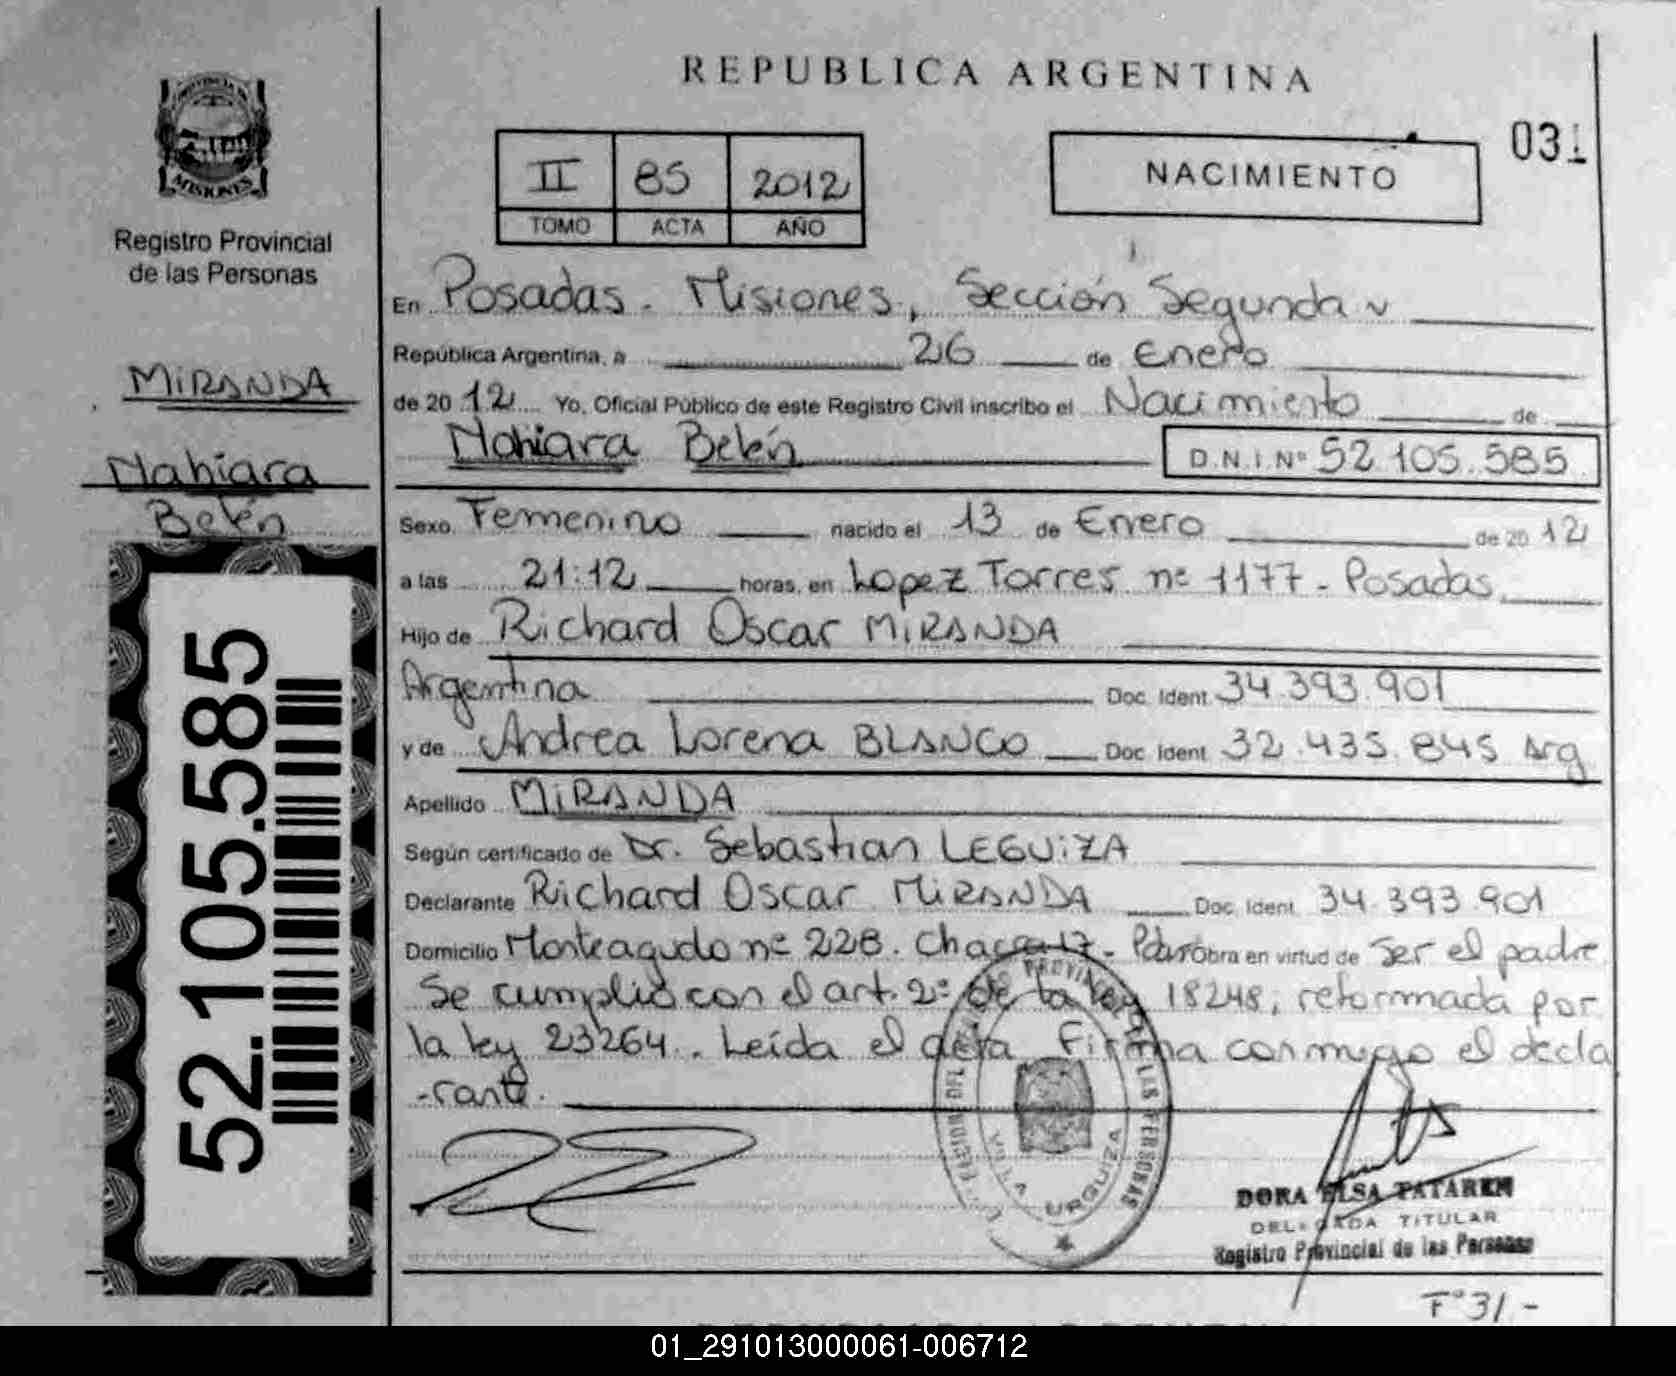 REPUBLICA ARGENTINA
MISIONES
Registro Provincial
de las Personas
MIRANDA
Nahiara
Belén
52.105.585
II 85 2012
TOMO ACTA AÑO
NACIMIENTO
031
En Posadas - Misiones, Sección Segunda
República Argentina, a 26 de Enero
de 2012 Yo, Oficial Público de este Registro Civil inscribo el Nacimiento de
Nahiara Belén D.N.I.Nº 52.105.585
Sexo Femenino nacido el 13 de Enero de 2012
a las 21:12 horas, en Lopez Torres nº 1177 - Posadas
Hijo de Richard Oscar MIRANDA
Argentina Doc. Ident. 34.393.901
y de Andrea Lorena BLANCO Doc. Ident. 32.435.845 Arg
Apellido MIRANDA
Según certificado de Dr. Sebastian LEGUIZA
Declarante Richard Oscar MIRANDA Doc. Ident. 34.393.901
Domicilio Monteagudo nº 228. Chacra 17- Obra en virtud de Ser el padre
Se cumplió con el art. 2º de la ley 18248, reformada por
la ley 23264. Leída el acta Firma conmigo el decla
-rante.
PROVINCIAL DE LAS PERSONAS
VILLA URQUIZA
DORA ELSA TATAREN
DELEGADA TITULAR
Registro Provincial de las Personas
Fº31.-
01_291013000061-006712